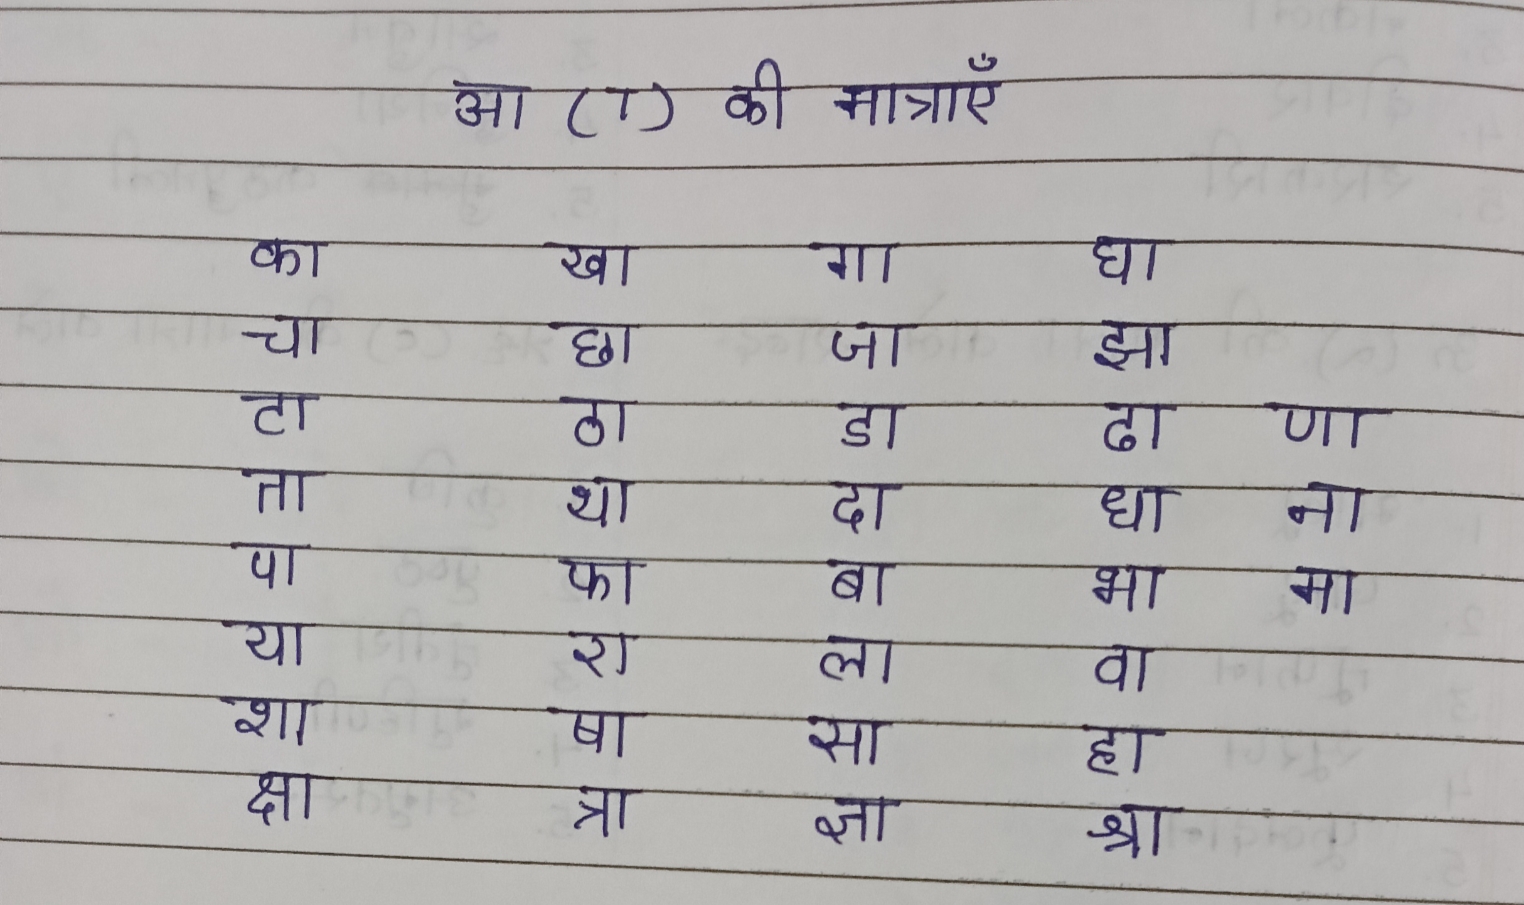 आ (ा) की मात्राएँ
का खा गा घा
चा छा जा झा
टा ठा डा ढा णा
ता था दा धा ना
पा फा बा भा मा
या रा ला वा
शा षा सा हा
क्षा त्रा ज्ञा श्रा